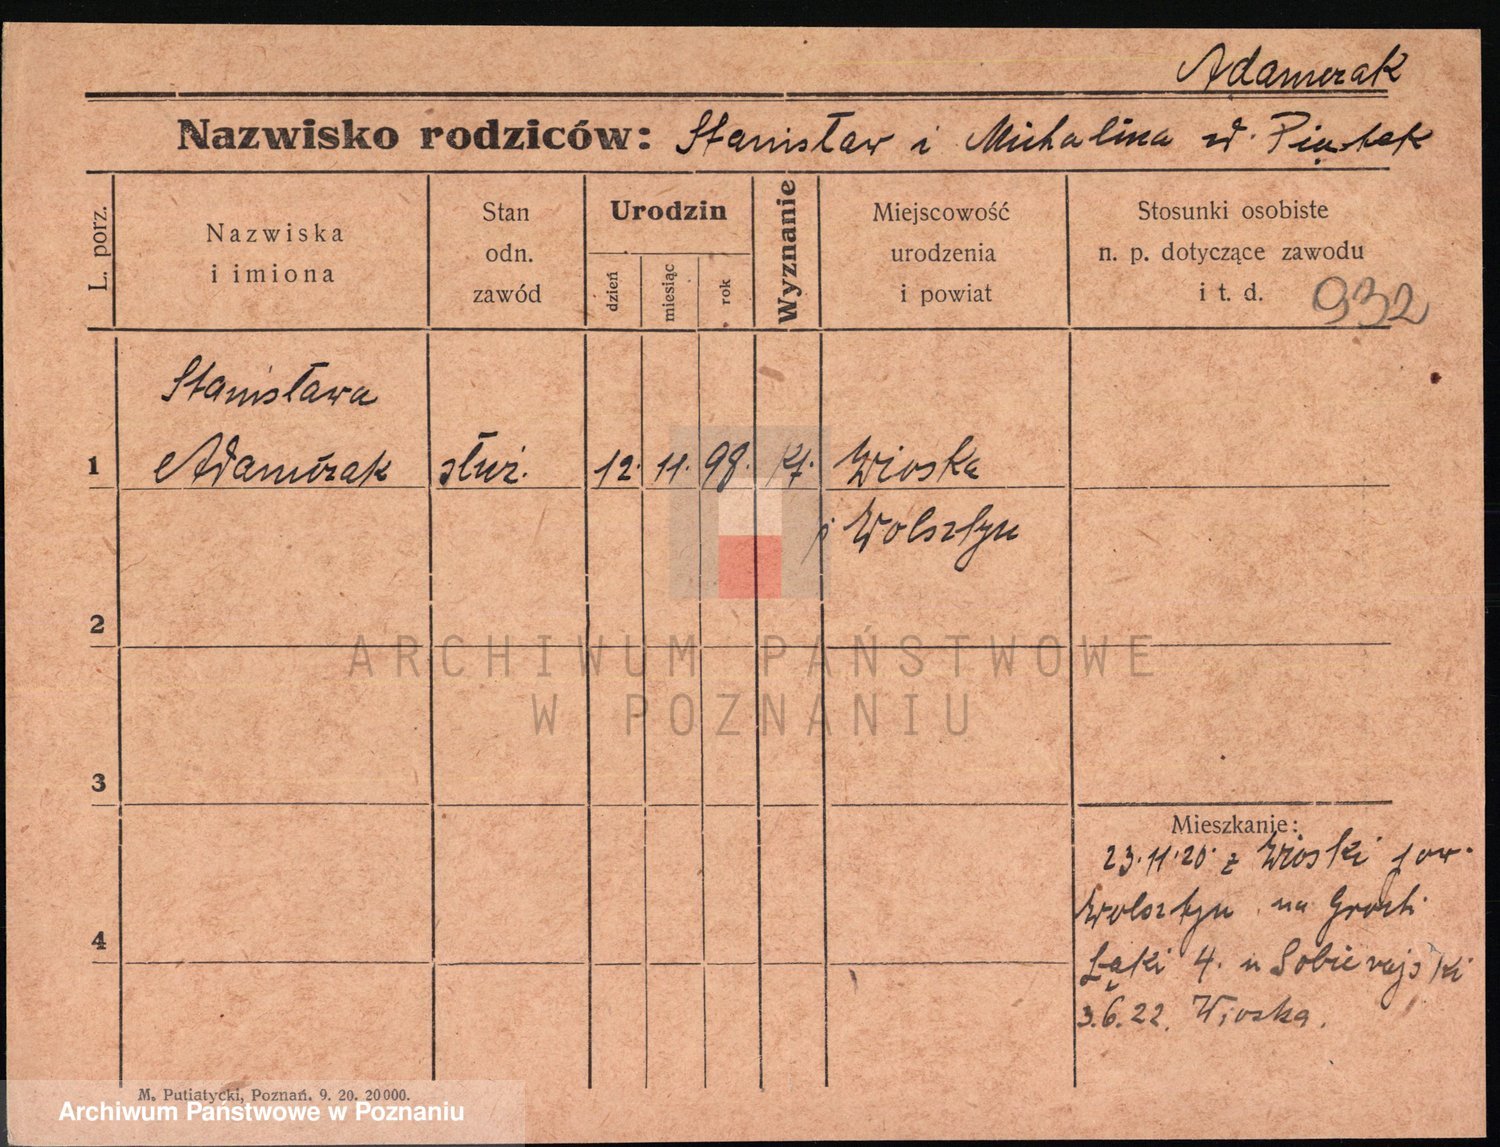 Adamczak
Nazwisko rodziców: Stanisław i Michalina zd. Piątek
L. porz.
Nazwiska
i imiona
Stan
odn.
zawód
Urodzin
dzień
miesiąc
rok
Wyznanie
Miejscowość
urodzenia
i powiat
Stosunki osobiste
n. p. dotyczące zawodu
i t. d.
932
Stanisława
1 Adamczak służ. 12. 11. 98. kt. Wioska
p Wolsztyn
2
ARCHIWUM PAŃSTWOWE
W POZNANIU
3
Mieszkanie:
23.11.20. z Wioski pow.
Wolsztyn na
4
Łąki 4. u Sobierajski
3.6.22. Wioska.
M. Putiatycki, Poznań. 9. 20. 20000.
Archiwum Państwowe w Poznaniu